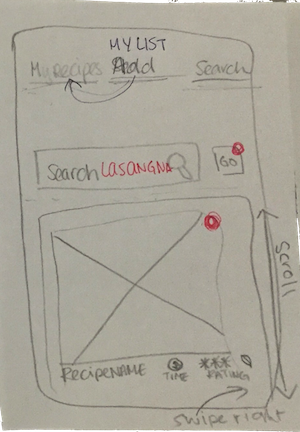 MY LIST
My Recipes Add Search
Search LASANGNA GO
RECIPENAME TIME RATING
scroll
swipe right